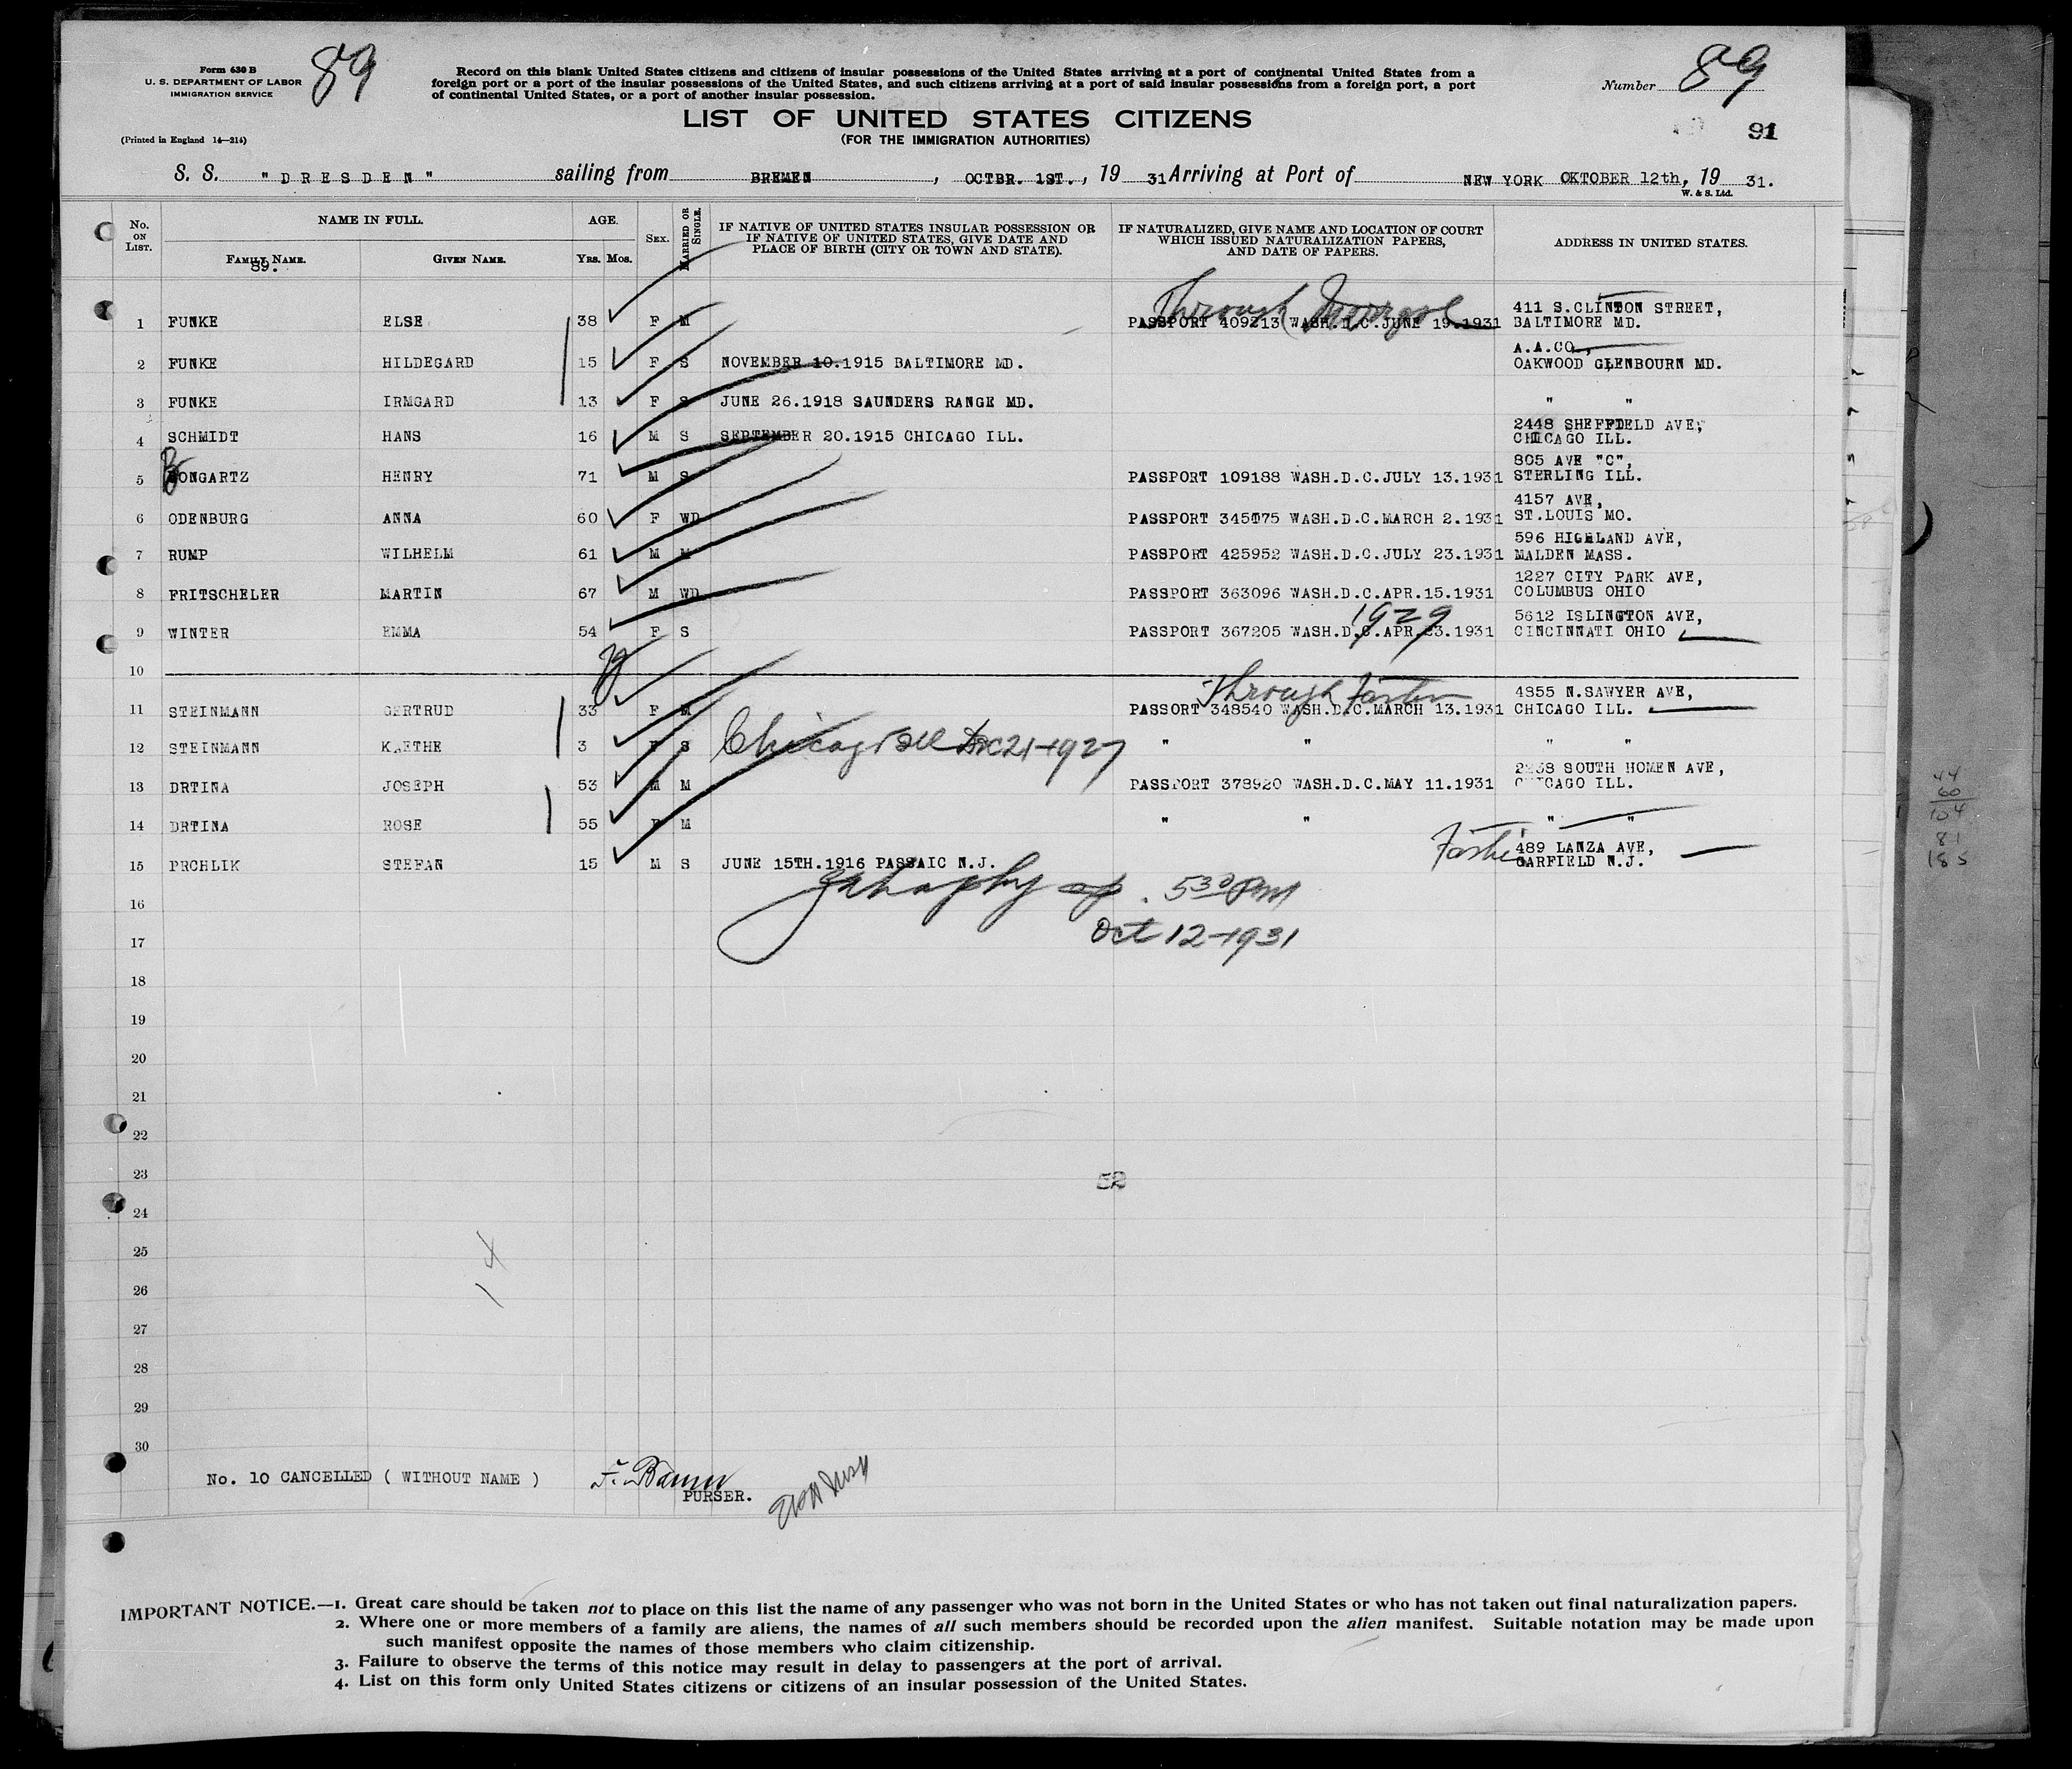 Form 630 B
U. S. DEPARTMENT OF LABOR
IMMIGRATION SERVICE
89
Record on this blank United States citizens and citizens of insular possessions of the United States arriving at a port of continental United States from a
foreign port or a port of the insular possessions of the United States, and such citizens arriving at a port of said insular possessions from a foreign port, a port
of continental United States, or a port of another insular possession.
Number 89
LIST OF UNITED STATES CITIZENS
(FOR THE IMMIGRATION AUTHORITIES)
(Printed in England 14—214)
91
S. S. "DRESDEN" sailing from BREMEN, OCTBR. 1ST., 19 31 Arriving at Port of NEW YORK OKTOBER 12th, 19 31.
W. & S. Ltd.
No. ON LIST.
NAME IN FULL.
FAMILY NAME.
89.
GIVEN NAME.
AGE.
YRS. MOS.
SEX.
MARRIED OR SINGLE.
IF NATIVE OF UNITED STATES INSULAR POSSESSION OR
IF NATIVE OF UNITED STATES, GIVE DATE AND
PLACE OF BIRTH (CITY OR TOWN AND STATE).
IF NATURALIZED, GIVE NAME AND LOCATION OF COURT
WHICH ISSUED NATURALIZATION PAPERS,
AND DATE OF PAPERS.
ADDRESS IN UNITED STATES.
Through
411 S.CLINTON STREET,
1 FUNKE ELSE 38 F M PASSPORT 409213 WASH.D.C.JUNE 19.1931 BALTIMORE MD.
A.A.CO.,
2 FUNKE HILDEGARD 15 F S NOVEMBER 10.1915 BALTIMORE MD. OAKWOOD GLENBOURN MD.
3 FUNKE IRMGARD 13 F S JUNE 26.1918 SAUNDERS RANGE MD. " "
2448 SHEFFIELD AVE,
4 SCHMIDT HANS 16 M S SEPTEMBER 20.1915 CHICAGO ILL. CHICAGO ILL.
805 AVE "C",
5 BONGARTZ HENRY 71 M S PASSPORT 109188 WASH.D.C.JULY 13.1931 STERLING ILL.
4157 AVE,
6 ODENBURG ANNA 60 F WD PASSPORT 345175 WASH.D.C.MARCH 2.1931 ST.LOUIS MO.
596 HIGHLAND AVE,
7 RUMP WILHELM 61 M M PASSPORT 425952 WASH.D.C.JULY 23.1931 MALDEN MASS.
1227 CITY PARK AVE,
8 FRITSCHELER MARTIN 67 M WD PASSPORT 363096 WASH.D.C.APR.15.1931 COLUMBUS OHIO
1929
5612 ISLINGTON AVE,
9 WINTER EMMA 54 F S PASSPORT 367205 WASH.D.C.APR.23.1931 CINCINNATI OHIO
10
Through
4855 N.SAWYER AVE,
11 STEINMANN GERTRUD 33 F M PASSORT 348540 WASH.D.C.MARCH 13.1931 CHICAGO ILL.
12 STEINMANN KAETHE 3 F S Chicago Ill Dec 21-1927 " " " "
SOUTH HOMEN AVE,
13 DRTINA JOSEPH 53 M M PASSPORT 378920 WASH.D.C.MAY 11.1931 CHICAGO ILL.
14 DRTINA ROSE 55 F M " " " "
489 LANZA AVE,
15 PRCHLIK STEFAN 15 M S JUNE 15TH.1916 PASSAIC N.J. GARFIELD N.J.
16
5 30 PM
17
Oct 12-1931
18
19
20
21
22
23
52
24
25
26
27
28
29
30
No. 10 CANCELLED ( WITHOUT NAME )
PURSER.
IMPORTANT NOTICE.—1. Great care should be taken not to place on this list the name of any passenger who was not born in the United States or who has not taken out final naturalization papers.
2. Where one or more members of a family are aliens, the names of all such members should be recorded upon the alien manifest. Suitable notation may be made upon
such manifest opposite the names of those members who claim citizenship.
3. Failure to observe the terms of this notice may result in delay to passengers at the port of arrival.
4. List on this form only United States citizens or citizens of an insular possession of the United States.
44
60
104
81
185